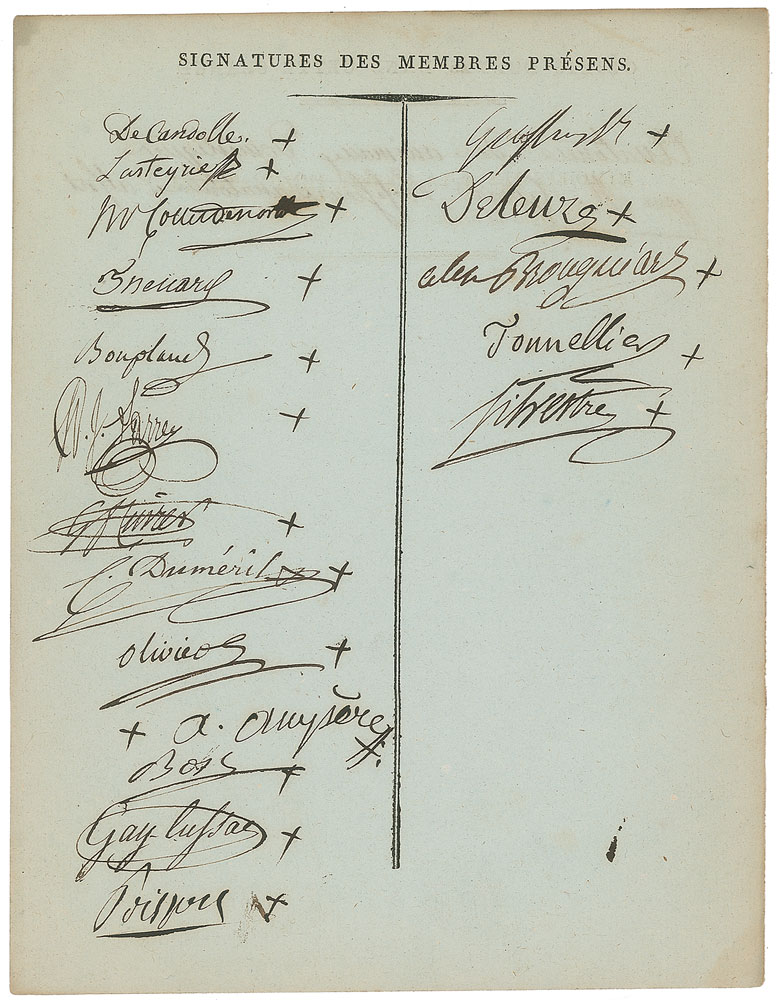 SIGNATURES DES MEMBRES PRÉSENS.
DeCandolle. +
Lasteyrie +
+
+
Bonpland +
D. J. Larrey +
G Cuvier +
C. Duméril +
olivier +
+ a. ampère
Bosc +
Gay-Lussac +
Poisson +
+
Deleuze +
alex Brongniart +
Tonnellier +
Silvestre +